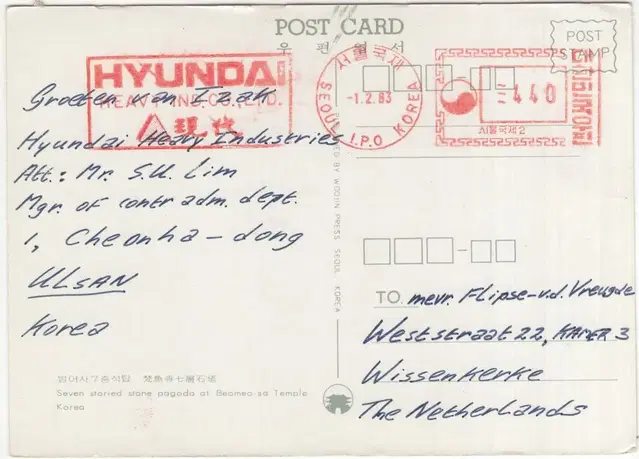 POST CARD
우 편 엽 서
POST
STAMP
HYUNDAI
HEAVY IND. CO., LTD.
現代
서울국제
-1.2.83
SEOUL I.P.O KOREA
440
서울국제 2
Groeten van Izak
Hyundai Heavy Industries
Att: Mr. S.U. Lim
Mgr. of contr adm. dept.
1, Cheonha-dong
ULSAN
Korea
범어사7층석탑 梵魚寺七層石塔
Seven storied stone pagoda at Beomeo-sa Temple
Korea
BY WOOJIN PRESS SEOUL KOREA
TO. mevr. Flipse-v.d. Vreugde
Weststraat 22, KAMER 3
Wissenkerke
The Netherlands